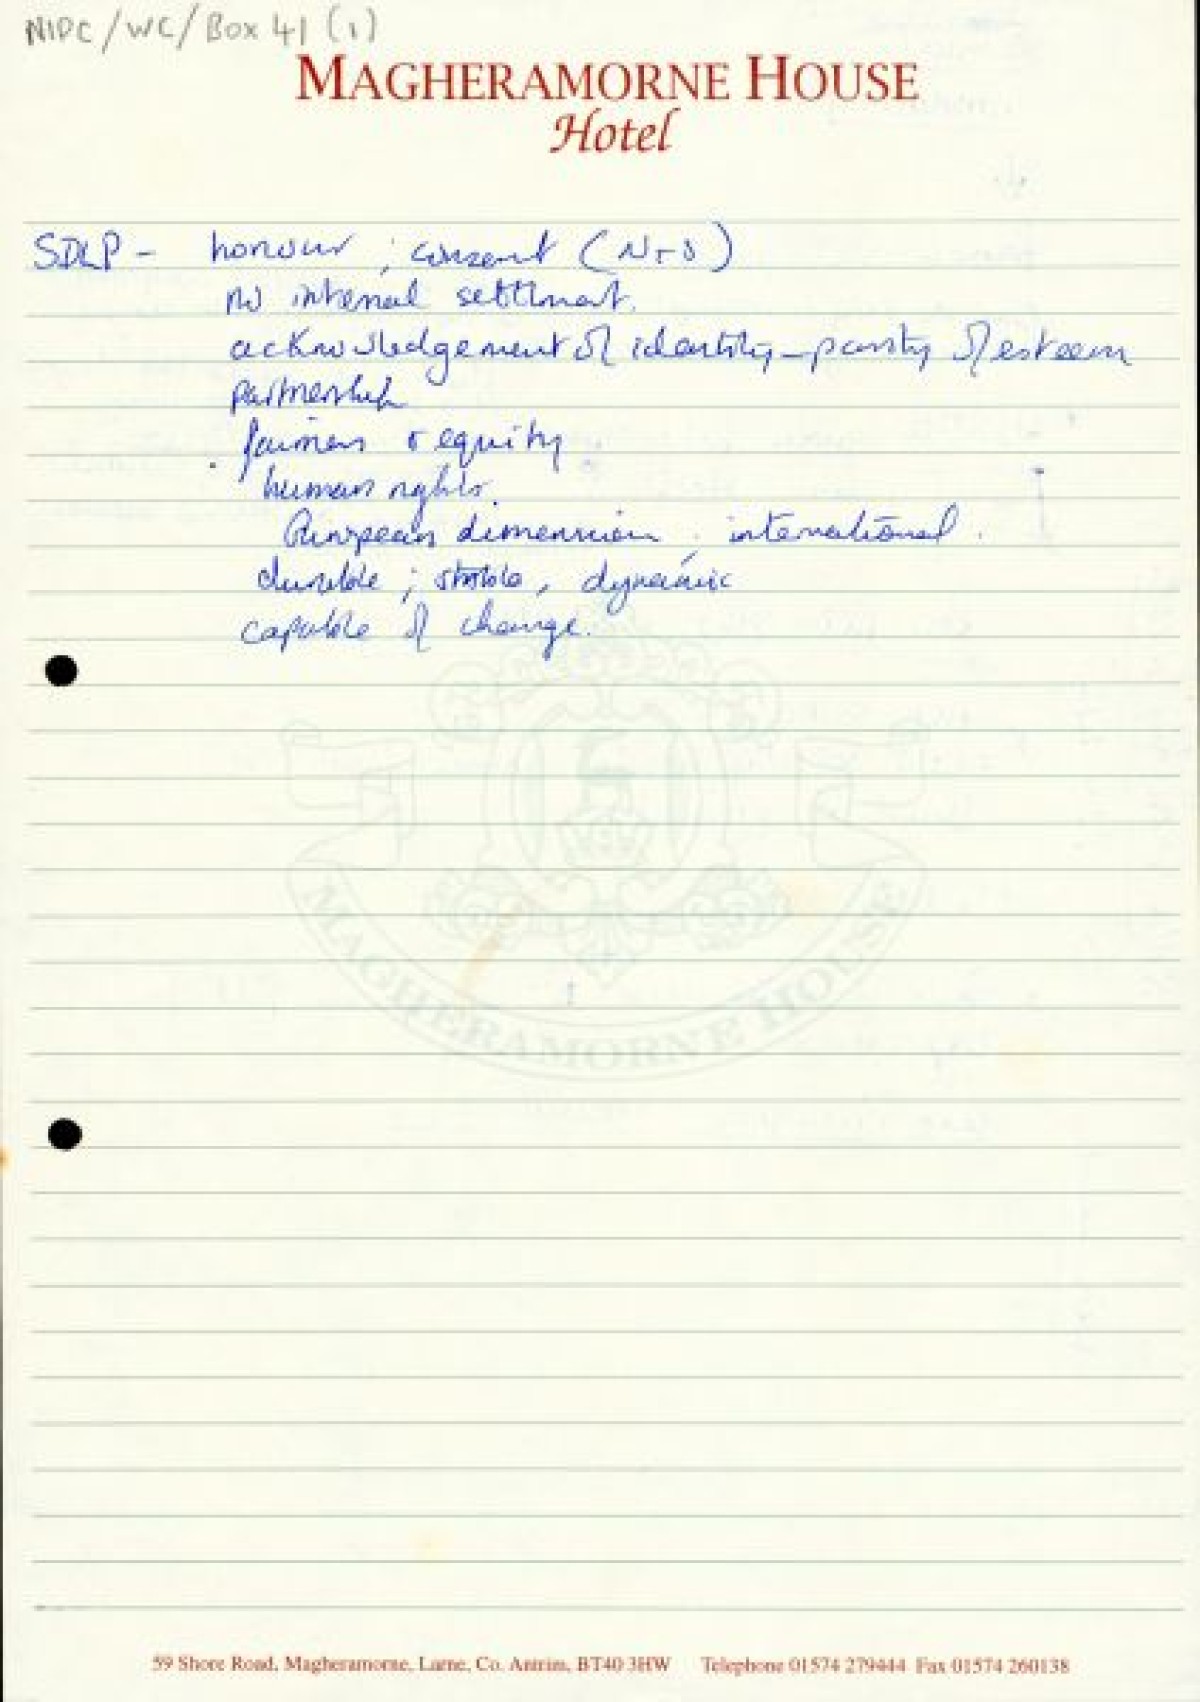 NIPC/WC/Box 41 (1)
MAGHERAMORNE HOUSE
Hotel
SDLP - honour ; consent (N + S)
no internal settlment.
acknowledgement of identity - parity of esteem
partnership
fairness & equity
human rights.
European dimension ; international.
durable ; stable, dynamic
capable of change.
MAGHERAMORNE HOUSE
59 Shore Road, Magheramorne, Larne, Co. Antrim, BT40 3HW Telephone 01574 279444 Fax 01574 260138